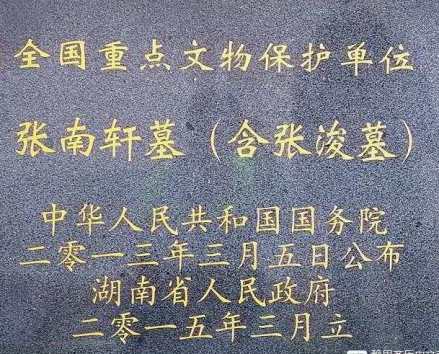 全国重点文物保护单位
张南轩墓（含张浚墓）
中华人民共和国国务院
二零一三年三月五日公布
湖南省人民政府
二零一五年三月立